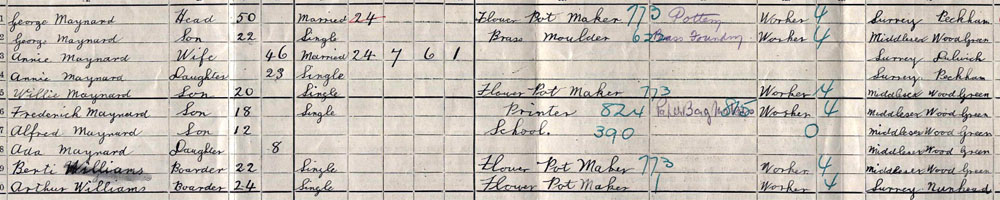 1 George Maynard Head 50 Married 24 Flower Pot Maker 773 Pottery Worker 4 Surrey Peckham
2 George Maynard Son 22 Single Brass Moulder Brass Foundry Worker 4 Middlesex Wood Green
3 Annie Maynard Wife 46 Married 24 7 6 1 Surrey Dulwich
4 Annie Maynard Daughter 23 Single Surrey Peckham
5 Willie Maynard Son 20 Single Flower Pot Maker 773 Worker 4 Middlesex Wood Green
6 Frederick Maynard Son 18 Single Printer 824 Worker 4 Middlesex Wood Green
7 Alfred Maynard Son 12 School. 390 0 Middlesex Wood Green
8 Ada Maynard Daughter 8 Middlesex Wood Green
9 Berti Williams Boarder 22 Single Flower Pot Maker 773 Worker 4 Middlesex Wood Green
0 Arthur Williams Boarder 24 Single Flower Pot Maker 1 Worker 4 Surrey Nunhead